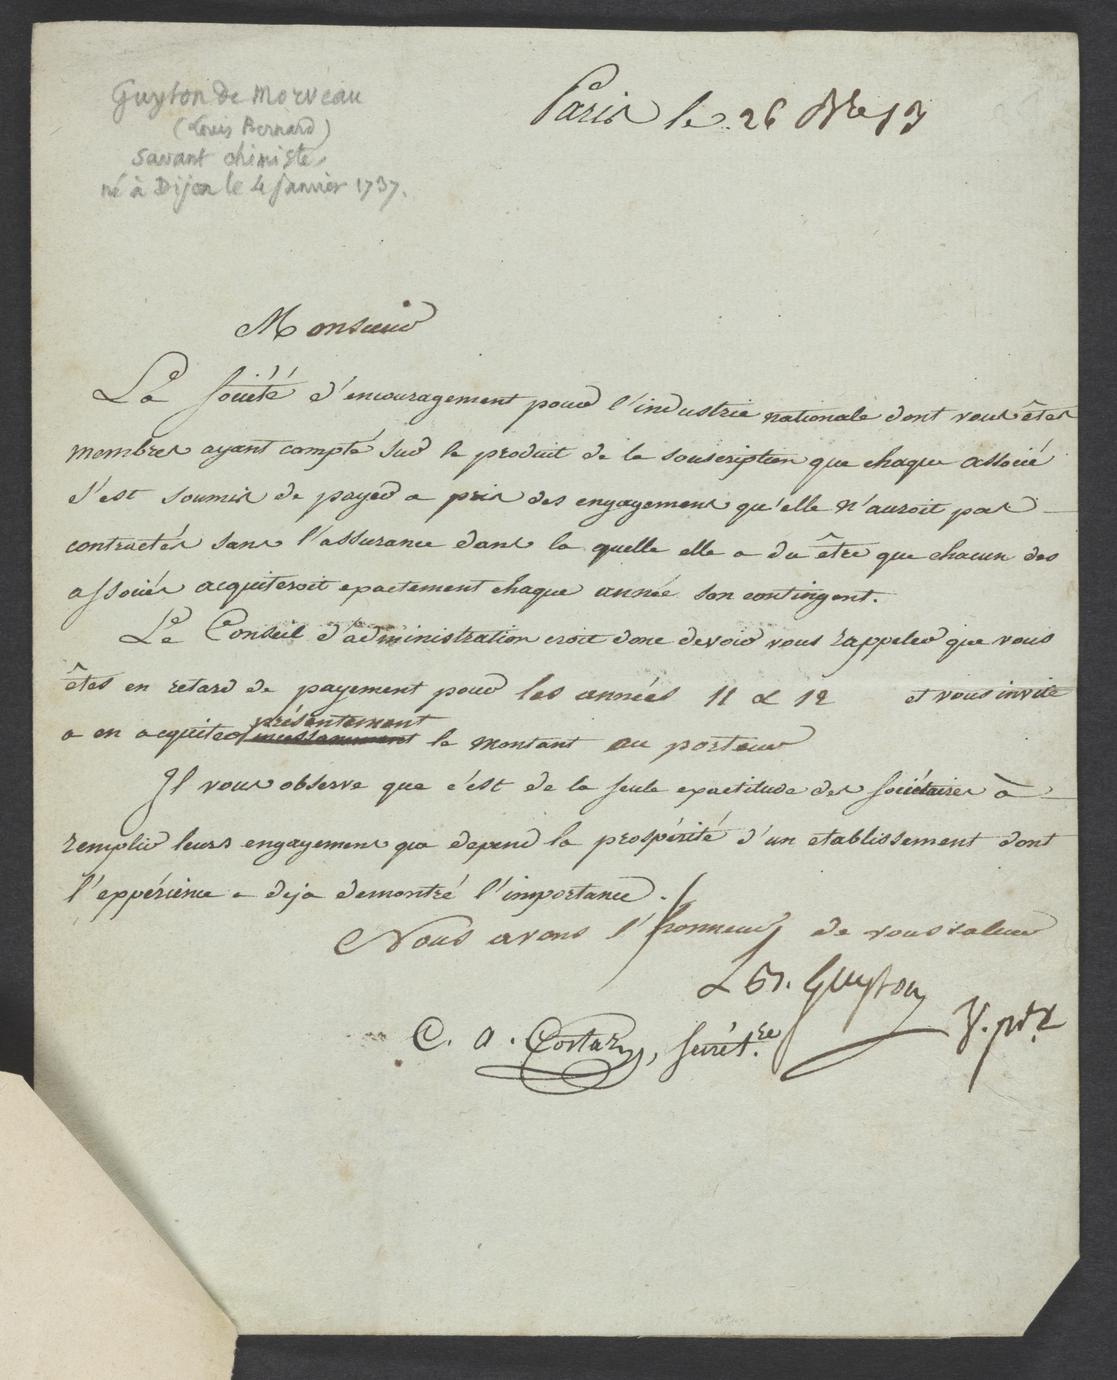 Guyton de Morveau
(Louis Bernard)
savant chimiste
né à Dijon le 4 janvier 1737.
Paris le 26 Bre 13
Monsieur
La Société d'encouragement pour l'industrie nationale dont vous êtes
membres ayant compté sur le produit de la souscription que chaque associé
s'est soumis de payer a pris des engagemens qu'elle n'auroit pas
contractés sans l'assurance dans la quelle elle a du être que chacun des
associés acquiteroit exactement chaque année son contingent.
Le Conseil d'administration croit donc devoir vous rappeler que vous
êtes en retard de payement pour les années 11 & 12 et vous invite
présentement
a en acquiter incessamment le montant au porteur
Il vous observe que c'est de la seule exactitude des sociétaires à
remplir leurs engagemens que depend la prospérité d'un etablissement dont
l'expérience a deja demontré l'importance.
Nous avons l'honneur de vous saluer
L B. Guyton
V. pdt
C. A. Costaz, secrét.re